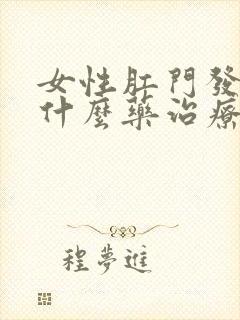 女性肛門發
什麼藥治療
程夢進